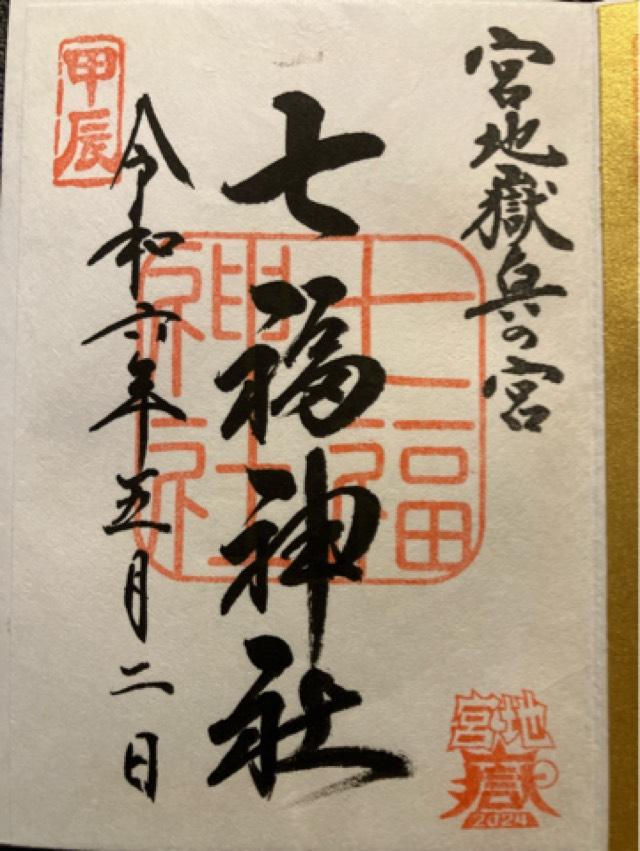 宮地嶽奥の宮
七福神社
令和六年五月二日
甲辰
七福
神社
宮地
嶽
2024